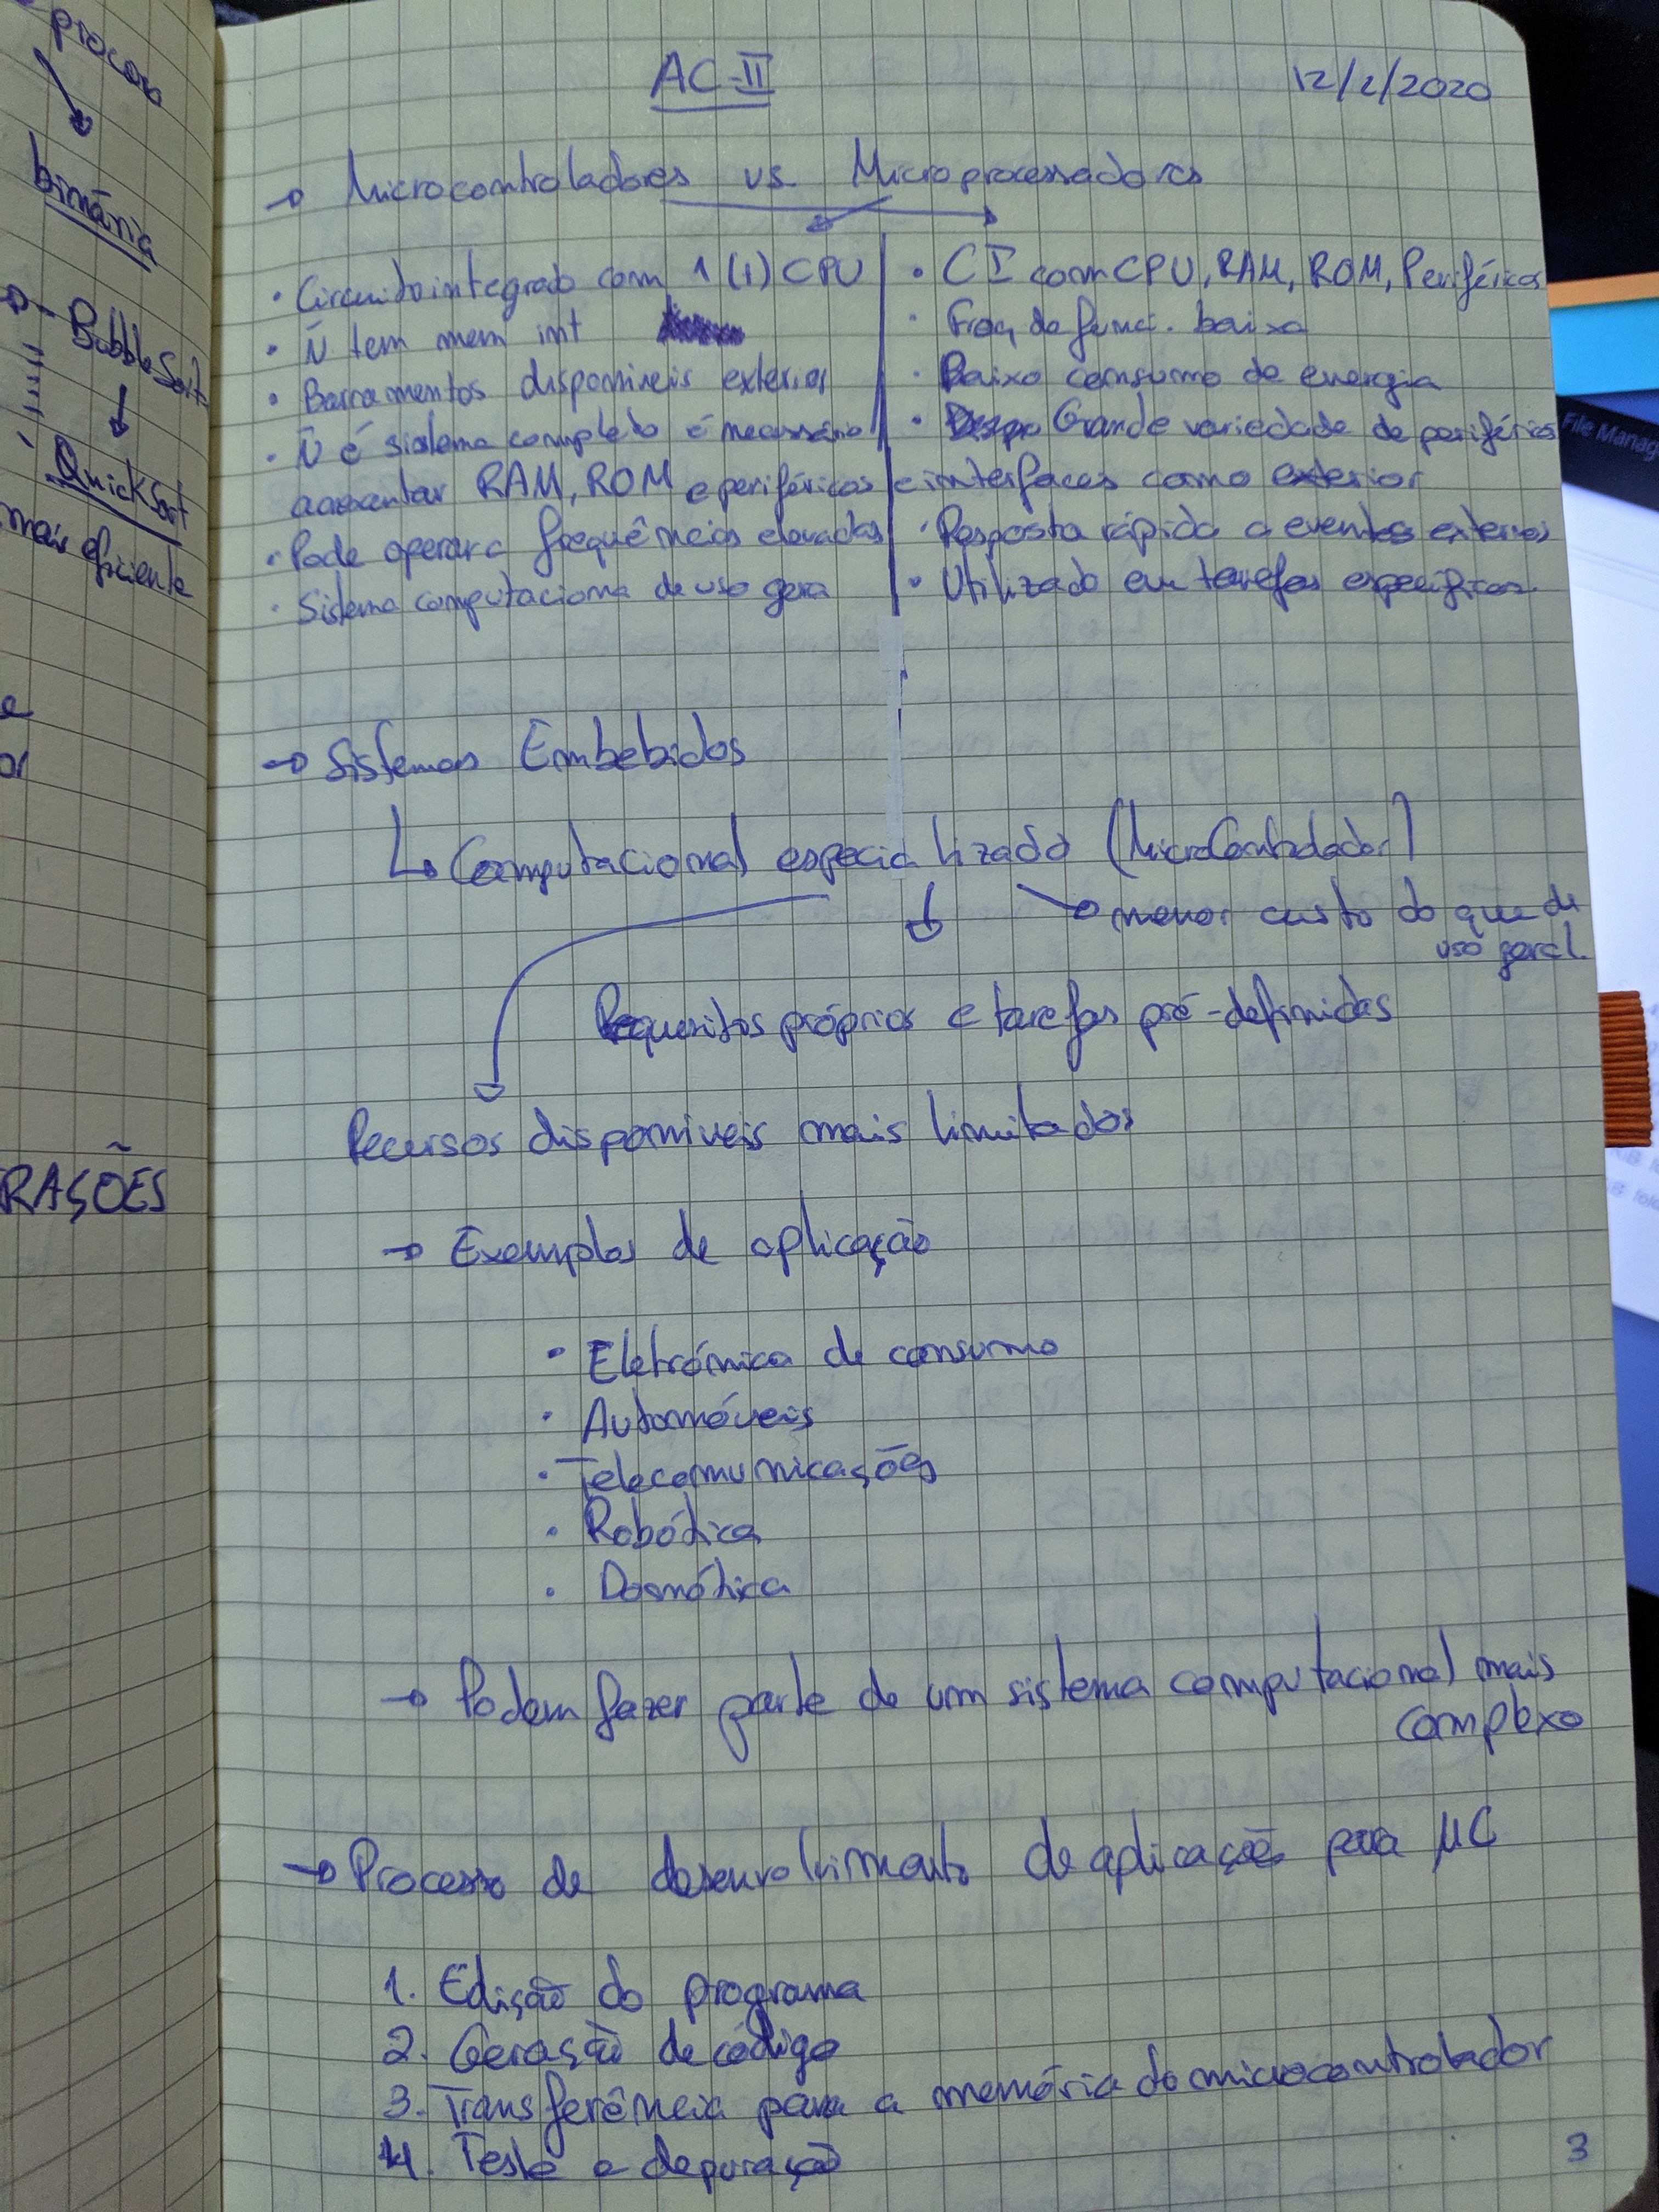 procura
binária
- BubbleSort
QuickSort
mais eficiente
e
or
RAÇÕES
AC-II
12/2/2020
→ Microcontroladores vs Microprocessadores
• Circuito integrado com 1 (+) CPU
• Ñ tem mem int
• Barramentos disponiveis exterior
• Ñ é sistema completo é necessário
acrescentar RAM, ROM e periféricos
• Pode operar a frequências elevadas
• Sistema computaciona de uso gera
• CI com CPU, RAM, ROM, Periféricos
• Freq de funci. baixa
• Baixo consumo de energia
• Grande variedade de periféricos
e interfaces como exterior
• Resposta rápida a eventos externos
• Utilizado em tarefas especificas
→ Sistemas Embebidos
↳ Computacional especializado (MicroControlador)
→ menor custo do que de
uso geral.
Requesitos próprios e tarefas pré-definidas
Recursos disponiveis mais limitados
→ Exemplos de aplicação
• Eletrónica de consumo
• Automóveis
• Telecomunicações
• Robótica
• Domótica
→ Podem fazer parte de um sistema computacional mais
complexo
→ Processo de desenvolvimento de aplicações para µC
1. Edição do programa
2. Geração de código
3. Transferência para a memória do microcontrolador
4. Teste e depuração
3
File Manag